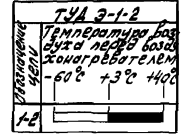 ТУД Э-1-2
Обозначение
цепи
Температура воз
духа перед возду
хонагревателем
-60°С +3°С +40°С
1-2